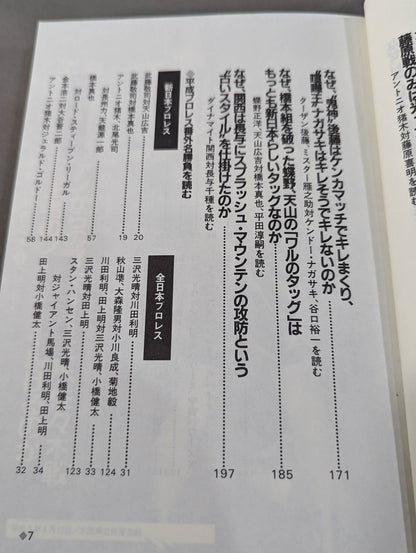 藤原戦のみに
アントニオ猪木対藤原喜明を読む
なぜ、“鬼神”後藤はケンカマッチでキレまくり、
“喧嘩王”ナガサキはキレそうでキレないのか
ターザン後藤、ミスター雁之助対ケンドー・ナガサキ、谷口裕一を読む
171
なぜ、橋本組を破った蝶野、天山の「ワルのタッグ」は
もっとも新日本らしいタッグなのか
蝶野正洋、天山広吉対橋本真也、平田淳嗣を読む
185
なぜ、関西は長与にスプラッシュ・マウンテンの攻防という
“古いスタイル”を仕掛けたのか
ダイナマイト関西対長与千種を読む
197
◆平成プロレス番外名勝負を読む
新日本プロレス
武藤敬司対天山広吉
20
武藤敬司対橋本真也
19
アントニオ猪木、北尾光司
対長州力、天龍源一郎
57
橋本真也
対ロード・スティーブン・リーガル
143
金本浩二対大谷晋二郎
144
アントニオ猪木対ジェラルド・ゴルドー
58
全日本プロレス
三沢光晴対川田利明
31
秋山準、大森隆男対小川良成、菊地毅
124
川田利明、田上明対三沢光晴、小橋健太
33
三沢光晴対田上明
123
スタン・ハンセン、三沢光晴、小橋健太
対ジャイアント馬場、川田利明、田上明
34
田上明対小橋健太
32
◆7